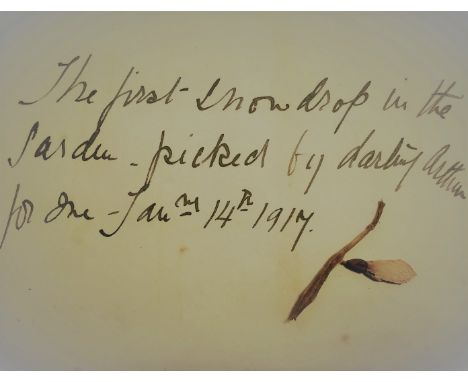 The first Snowdrop in the
Garden - picked by darling Arthur
for me - Jan^ry 14^th 1917.